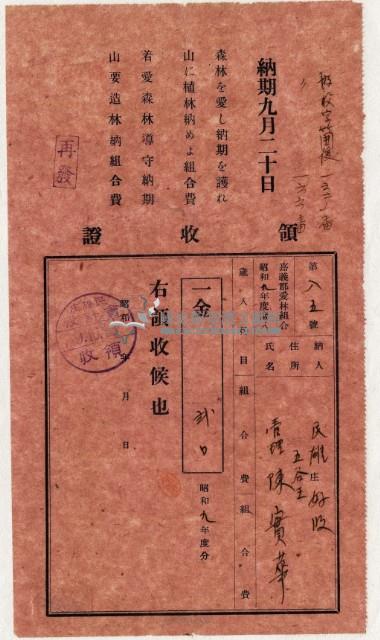 納期九月二十日
森林を愛し納期を護れ
山に植林納めよ組合費
若愛森林導守納期
山要造林納組合費
再發
領收證
第八五號
納人
住所
氏名
民雄庄好收
五谷王
管理陳實華
嘉義郡愛林組合
昭和九年度
歲入科目組合費組合費
一金
昭和九年度分
右領收候也
昭和年月日
領收